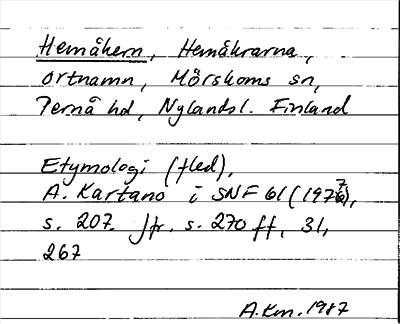 Hemåkern, Hemåkrarna,
ortnamn, Mörskoms sn,
Pernå hd, Nylandsl. Finland
Etymologi (fled),
A. Kartano i SNF 61 (1977),
s. 207. Jfr. s. 270 ff, 31,
267
A.Km. 1987